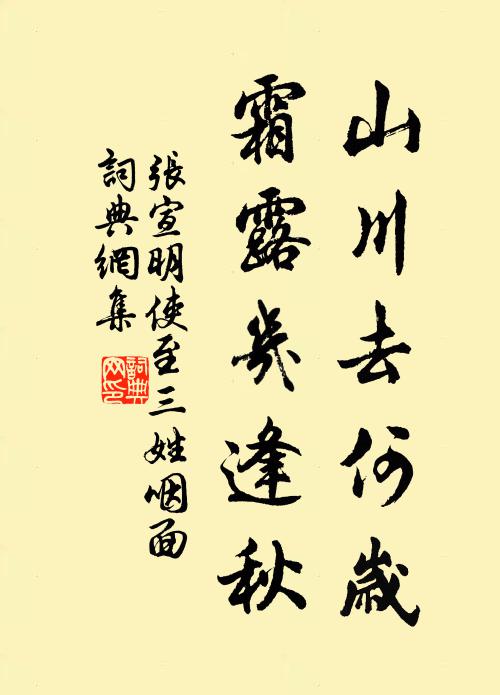 山川去何歲
霜露幾逢秋
張宣明使至三姓咽面
詞典網集
詞典網印